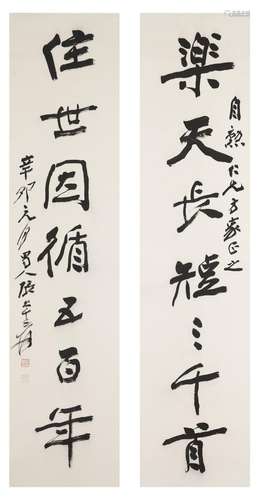 樂天長短三千首
自勲仁兄方家正之
住世因循五百年
辛卯元月蜀人張大千爰